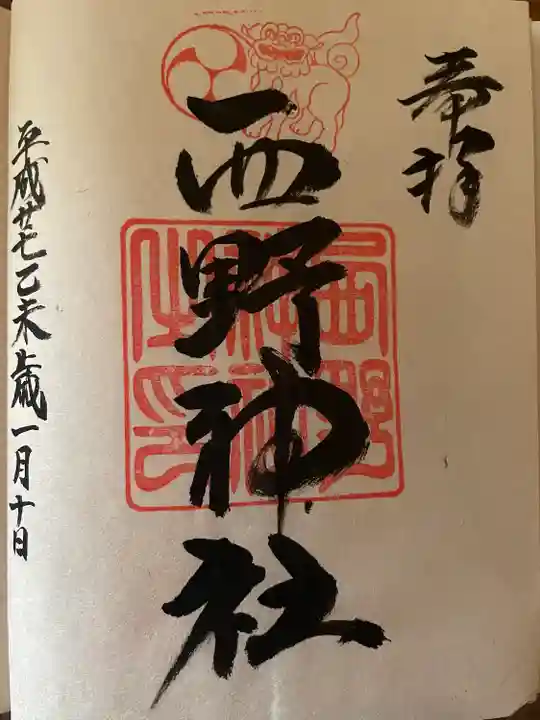 奉拝
西野神社
西野神社之印
平成廿七乙未歳一月十日